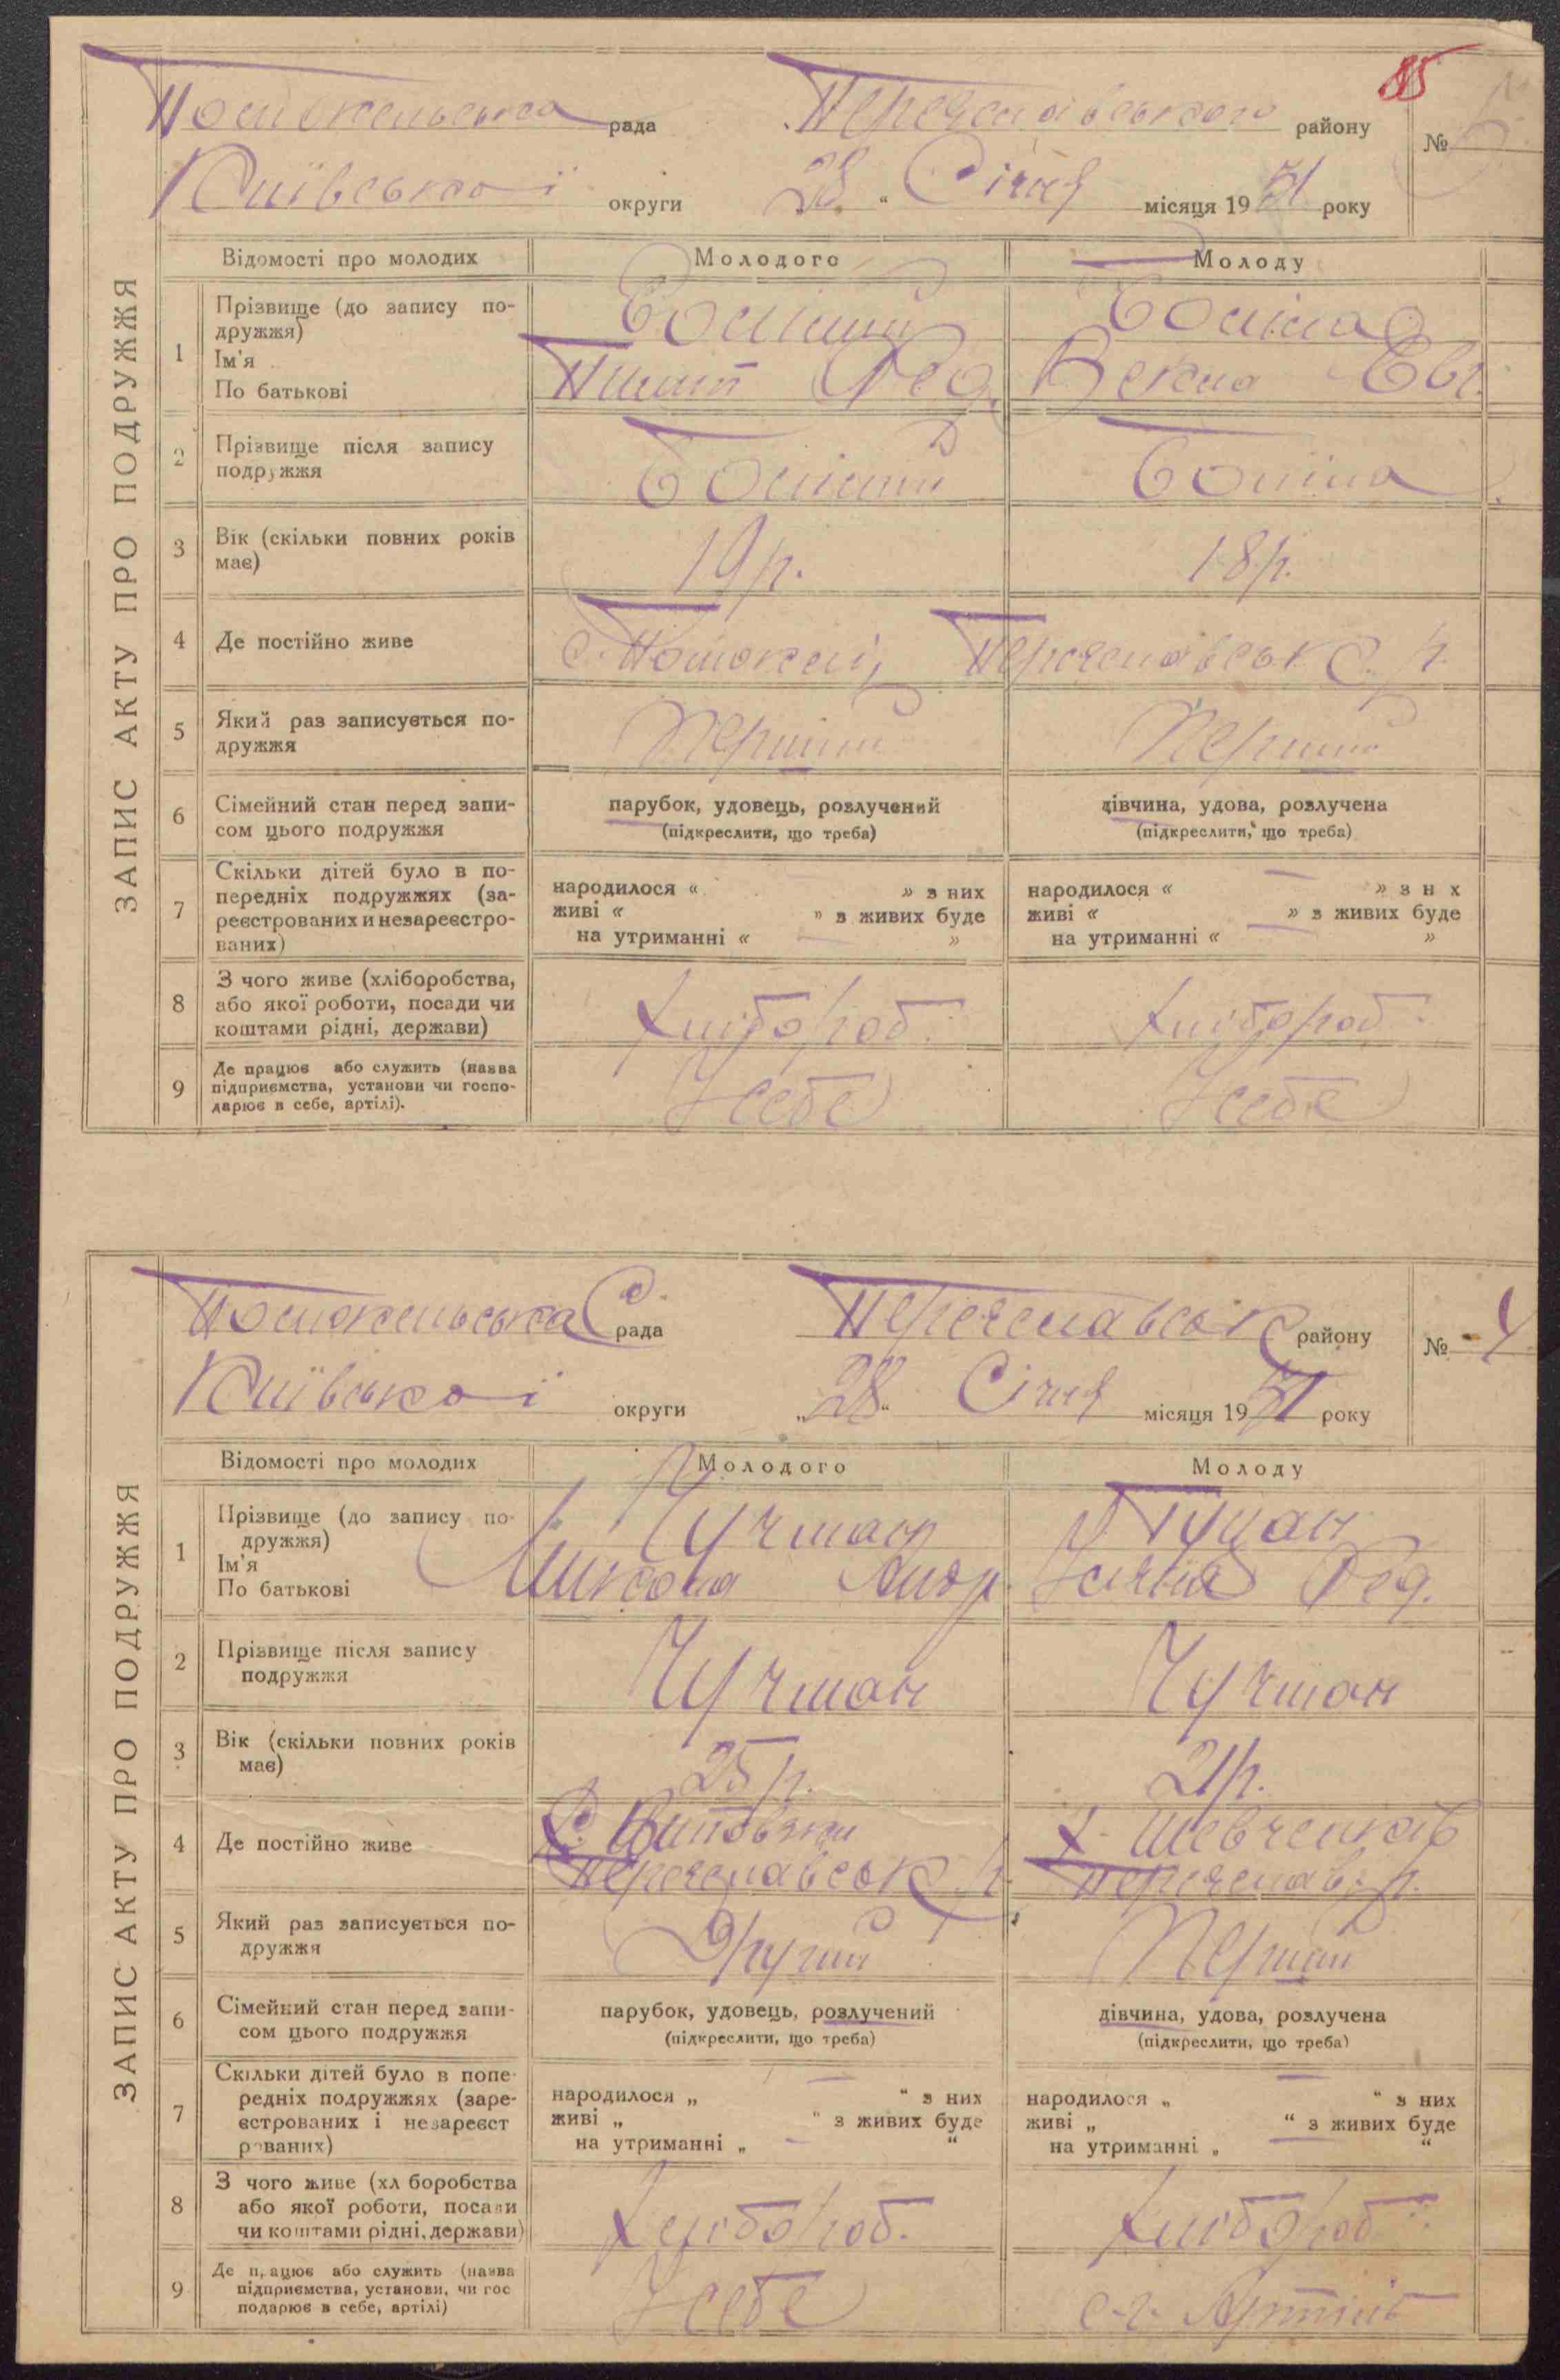 85
Потокельська рада Переяславського району №
Київської округи „28“ Січня місяця 1931 року
ЗАПИС АКТУ ПРО ПОДРУЖЖЯ
Відомості про молодих Молодого Молоду
1 Прізвище (до запису по-
дружжя)
Ім'я
По батькові Фед.
2 Прізвище після запису
подружжя
3 Вік (скільки повних років
має) 19 р. 18 р.
4 Де постійно живе Переяславськ. р.
5 Який раз записується по-
дружжя Перший Перший
6 Сімейний стан перед запи-
сом цього подружжя парубок, удовець, розлучений дівчина, удова, розлучена
(підкреслити, що треба) (підкреслити, що треба)
7 Скільки дітей було в по-
передніх подружжях (за-
реєстрованих и незареєстро-
ваних) народилося « » з них народилося « » з н х
живі « » з живих буде живі « » з живих буде
на утриманні « » на утриманні « »
8 З чого живе (хліборобства,
або якої роботи, посади чи
коштами рідні, держави) Хлібороб. Хлібороб.
9 Де працює або служить (назва
підприємства, установи чи госпо-
дарює в себе, артілі). У себе У себе
Потокельська С. рада Переяславськ району № 4
Київської округи „28“ Січня місяця 1931 року
ЗАПИС АКТУ ПРО ПОДРУЖЖЯ
Відомості про молодих Молодого Молоду
1 Прізвище (до запису по-
дружжя) Чучман
Ім'я
По батькові Микола Андр. Фед.
2 Прізвище після запису
подружжя Чучман Чучман
3 Вік (скільки повних років
має) 25 р. 21 р.
4 Де постійно живе Х. Шевченків
Переяславськ р. Переяслав. р.
5 Який раз записується по-
дружжя Другий Перший
6 Сімейний стан перед запи-
сом цього подружжя парубок, удовець, розлучений дівчина, удова, розлучена
(підкреслити, що треба) (підкреслити, що треба)
7 Скільки дітей було в попе-
редніх подружжях (заре-
єстрованих і незареєст
рованих) народилося „ “ з них народилося „ “ з них
живі „ “ з живих буде живі „ “ з живих буде
на утриманні „ “ на утриманні „ “
8 З чого живе (хл боробства
або якої роботи, посади
чи коштами рідні, держави) Хлібороб. Хлібороб.
9 Де працює або служить (назва
підприємства, установи, чи гос
подарює в себе, артілі) У себе с-г. Артіль